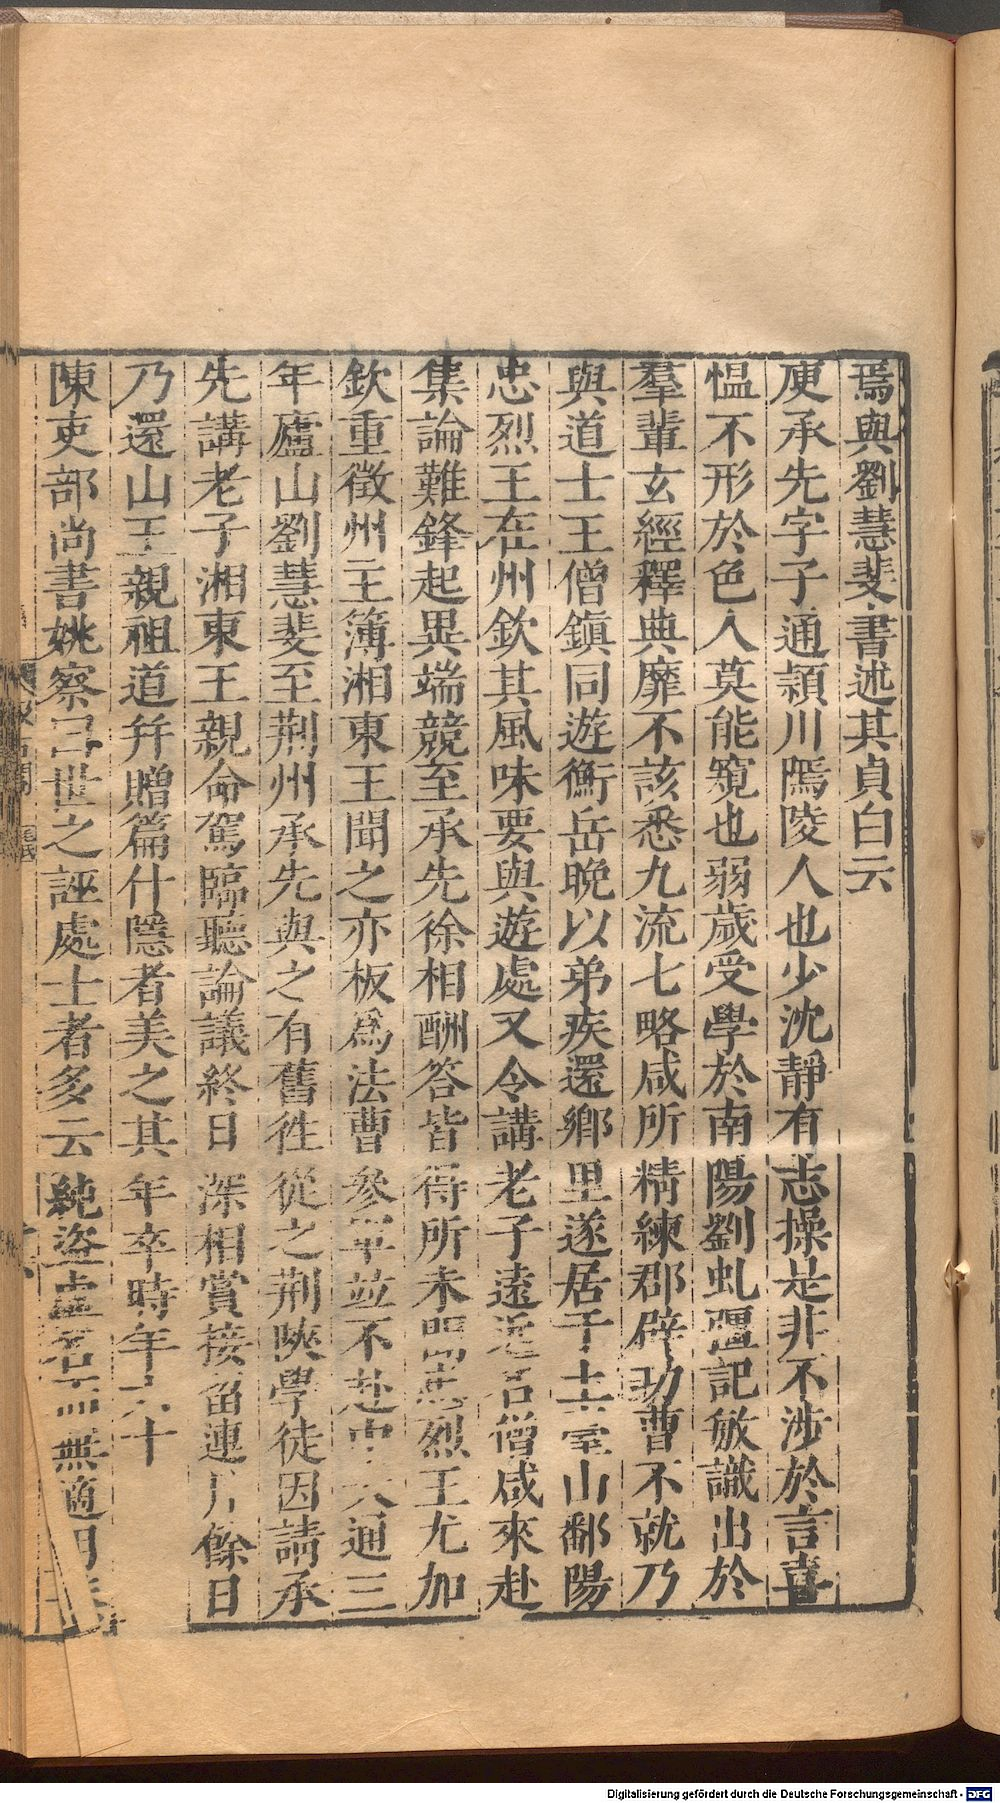 焉與劉慧斐書述其貞白云
庾承先字子通頴川隝陵人也少沈靜有志操是非不涉於言喜
愠不形於色人莫能窺也弱歲受學於南陽劉虬彊記敏識出於
羣輩玄經釋典靡不該悉九流七略咸所精練郡辟功曹不就乃
與道士王僧鎭同遊衡岳晚以弟疾還鄉里遂居于土室山鄱陽
忠烈王在州欽其風味要與遊處又令講老子遠近名僧咸來赴
集論難鋒起異端競至承先徐相酬答皆得所未聞忠烈王尤加
欽重徵州主簿湘東王聞之亦板爲法曹參軍並不赴中大通三
年廬山劉慧斐至荆州承先與之有舊徃從之荆陜學徒因請承
先講老子湘東王親命駕臨聽論議終日深相賞接留連月餘日
乃還山王親祖道并贈篇什隱者美之其年卒時年六十
陳吏部尚書姚察曰世之誣處士者多云純盜虛名而無適用
Digitalisierung gefördert durch die Deutsche Forschungsgemeinschaft - DFG